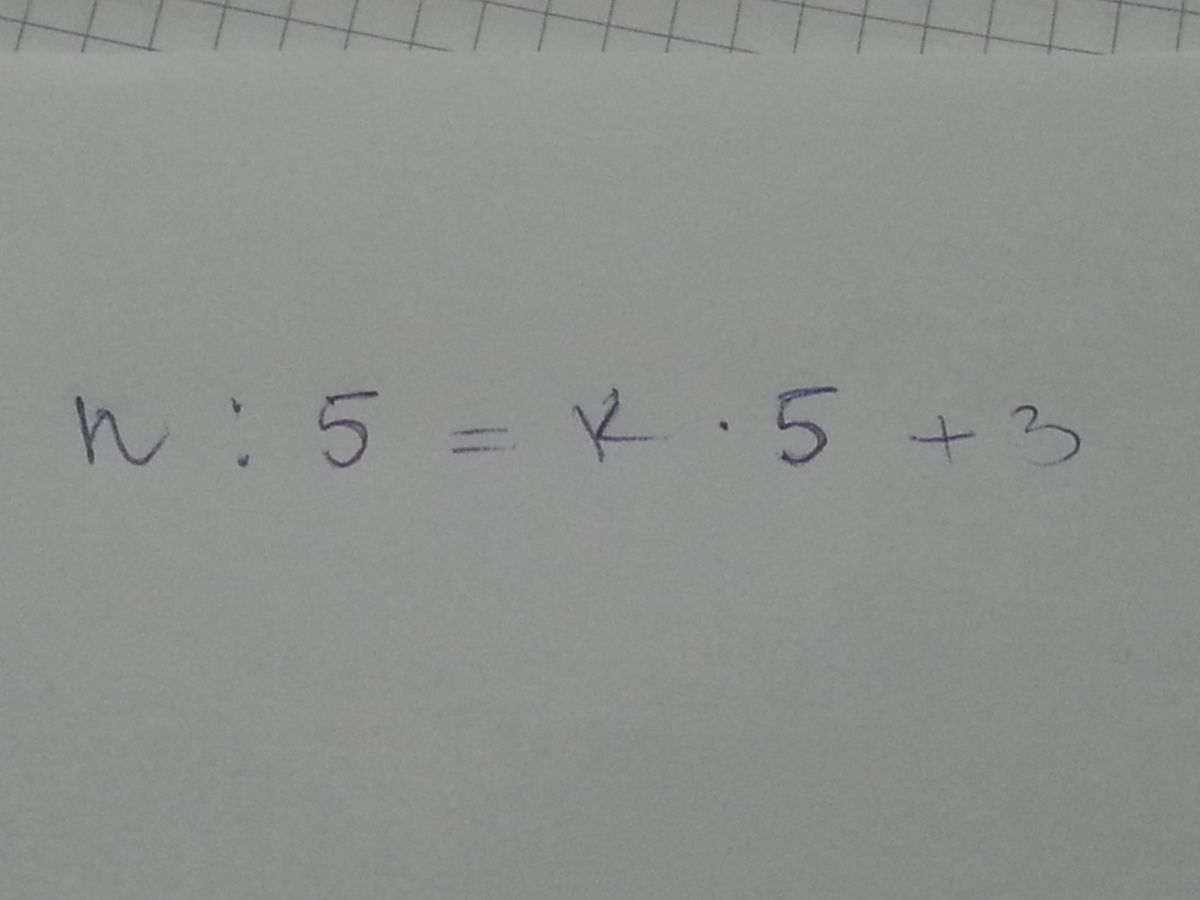 n : 5 = k · 5 + 3